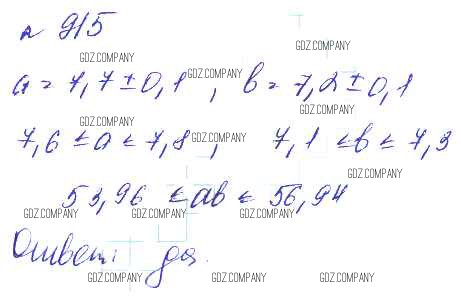 № 915
GDZ.COMPANY
GDZ.COMPANY
a = 7,7 ± 0,1 , b = 7,2 ± 0,1
GDZ.COMPANY
GDZ.COMPANY
GDZ.COMPANY
GDZ.COMPANY
7,6 ≤ a ≤ 7,8 , 7,1 ≤ b ≤ 7,3
GDZ.COMPANY
GDZ.COMPANY
53,96 ≤ ab ≤ 56,94
GDZ.COMPANY GDZ.COMPANY GDZ.COMPANY
Ответ: да.
GDZ.COMPANY GDZ.COMPANY GDZ.COMPANY